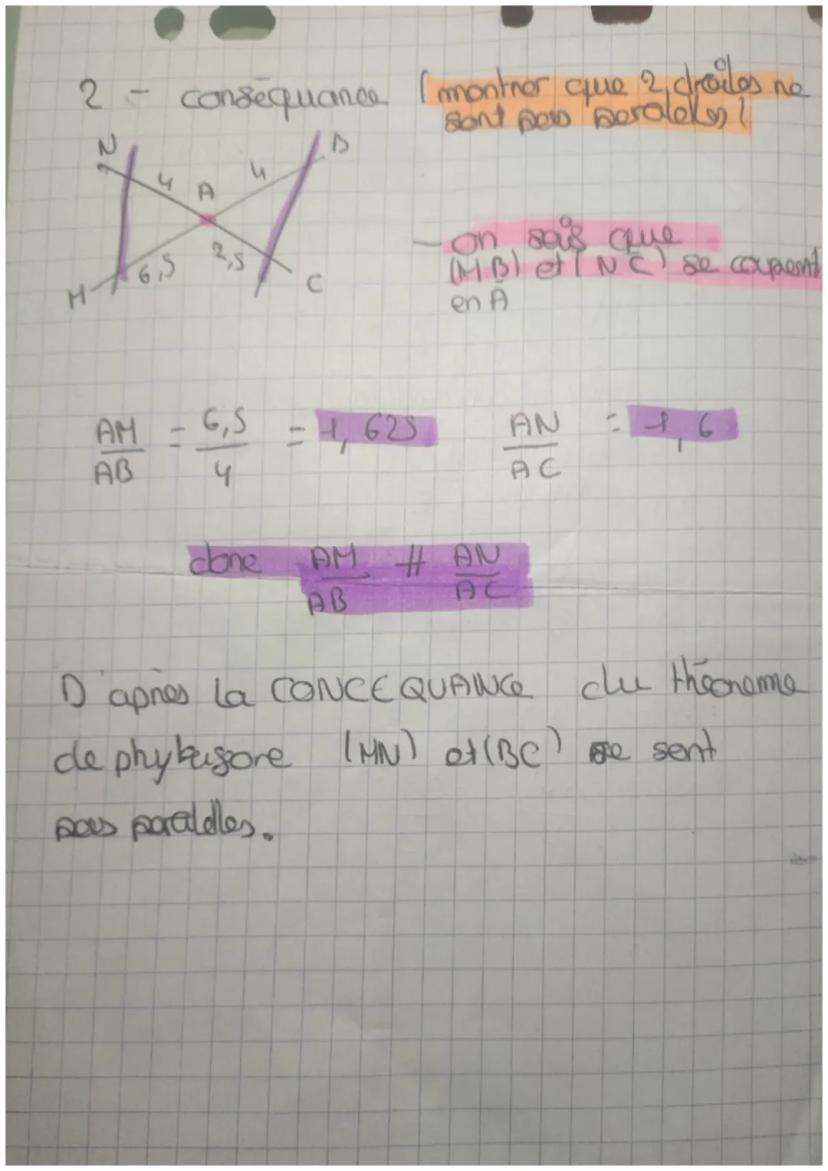 2 - conséquance (montrer que 2 droites ne
sont pas paraleles)
N
B
4
A
4
6,5
2,5
M
C
- on sais que
(MB) et (NC) se coupent
en A
AM/AB = 6,5/4 = 1,625 AN/AC = 1,6
donc AM/AB ≠ AN/AC
D'après la CONCEQUANCe du théoreme
de phytagore (MN) et (BC) ne sont
pas paraleles.